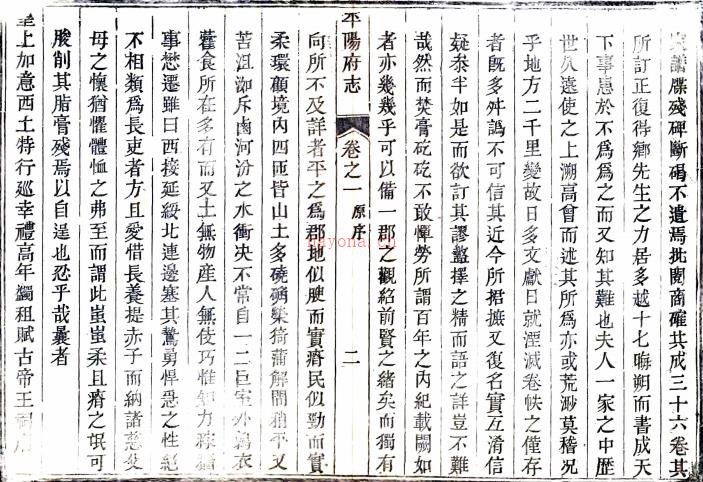 家譜牒殘碑斷碣不遺焉批閱商確共成三十六卷其
所訂正復得鄉先生之力居多越十七晦朔而書成天
下事患於不爲爲之而又知其難也夫人一家之中歷
世久遠使之上溯高曾而述其所爲亦或荒渺莫稽況
乎地方二千里變故日多文獻日就湮滅卷帙之僅存
者旣多舛譌不可信其近今所捃摭又復名實互淆信
疑叅半如是而欲訂其謬盭擇之精而語之詳豈不難
哉然而焚膏矻矻不敢憚勞所謂百年之內紀載闕如
者亦幾幾乎可以備一郡之觀紹前賢之緒矣而獨有
平陽府志 卷之一 原序 二
向所不及詳者平之爲郡地似腴而實瘠民似勁而實
柔環顧境內四匝皆山土多磽确榮猗蒲解間稍平又
苦沮洳斥鹵河汾之水衝决不常自一二巨室外褐衣
藿食所在多有而又土無物産人無伎巧惟知力穡
事懋遷雖曰西接延綏北連邊塞其鷙勇悍惡之性絕
不相類爲長吏者方且愛惜長養提赤子而納諸慈父
母之懷猶懼體恤之弗至而謂此蚩蚩柔且瘠之氓可
朘削其脂膏殘焉以自逞也忍乎哉曩者
皇上加意西土特行巡幸禮高年蠲租賦古帝王祠
nayona.cn